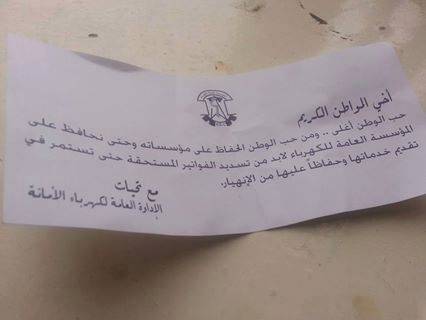 أخي المواطن الكريم
حب الوطن أغلى .. ومن حب الوطن الحفاظ على مؤسساته وحتى نحافظ على
المؤسسة العامة للكهرباء لابد من تسديد الفواتير المستحقة حتى تستمر في
تقديم خدماتها وحفاظاً عليها من الإنهيار.
مع تحيات
الإدارة العامة لكهرباء الأمانة